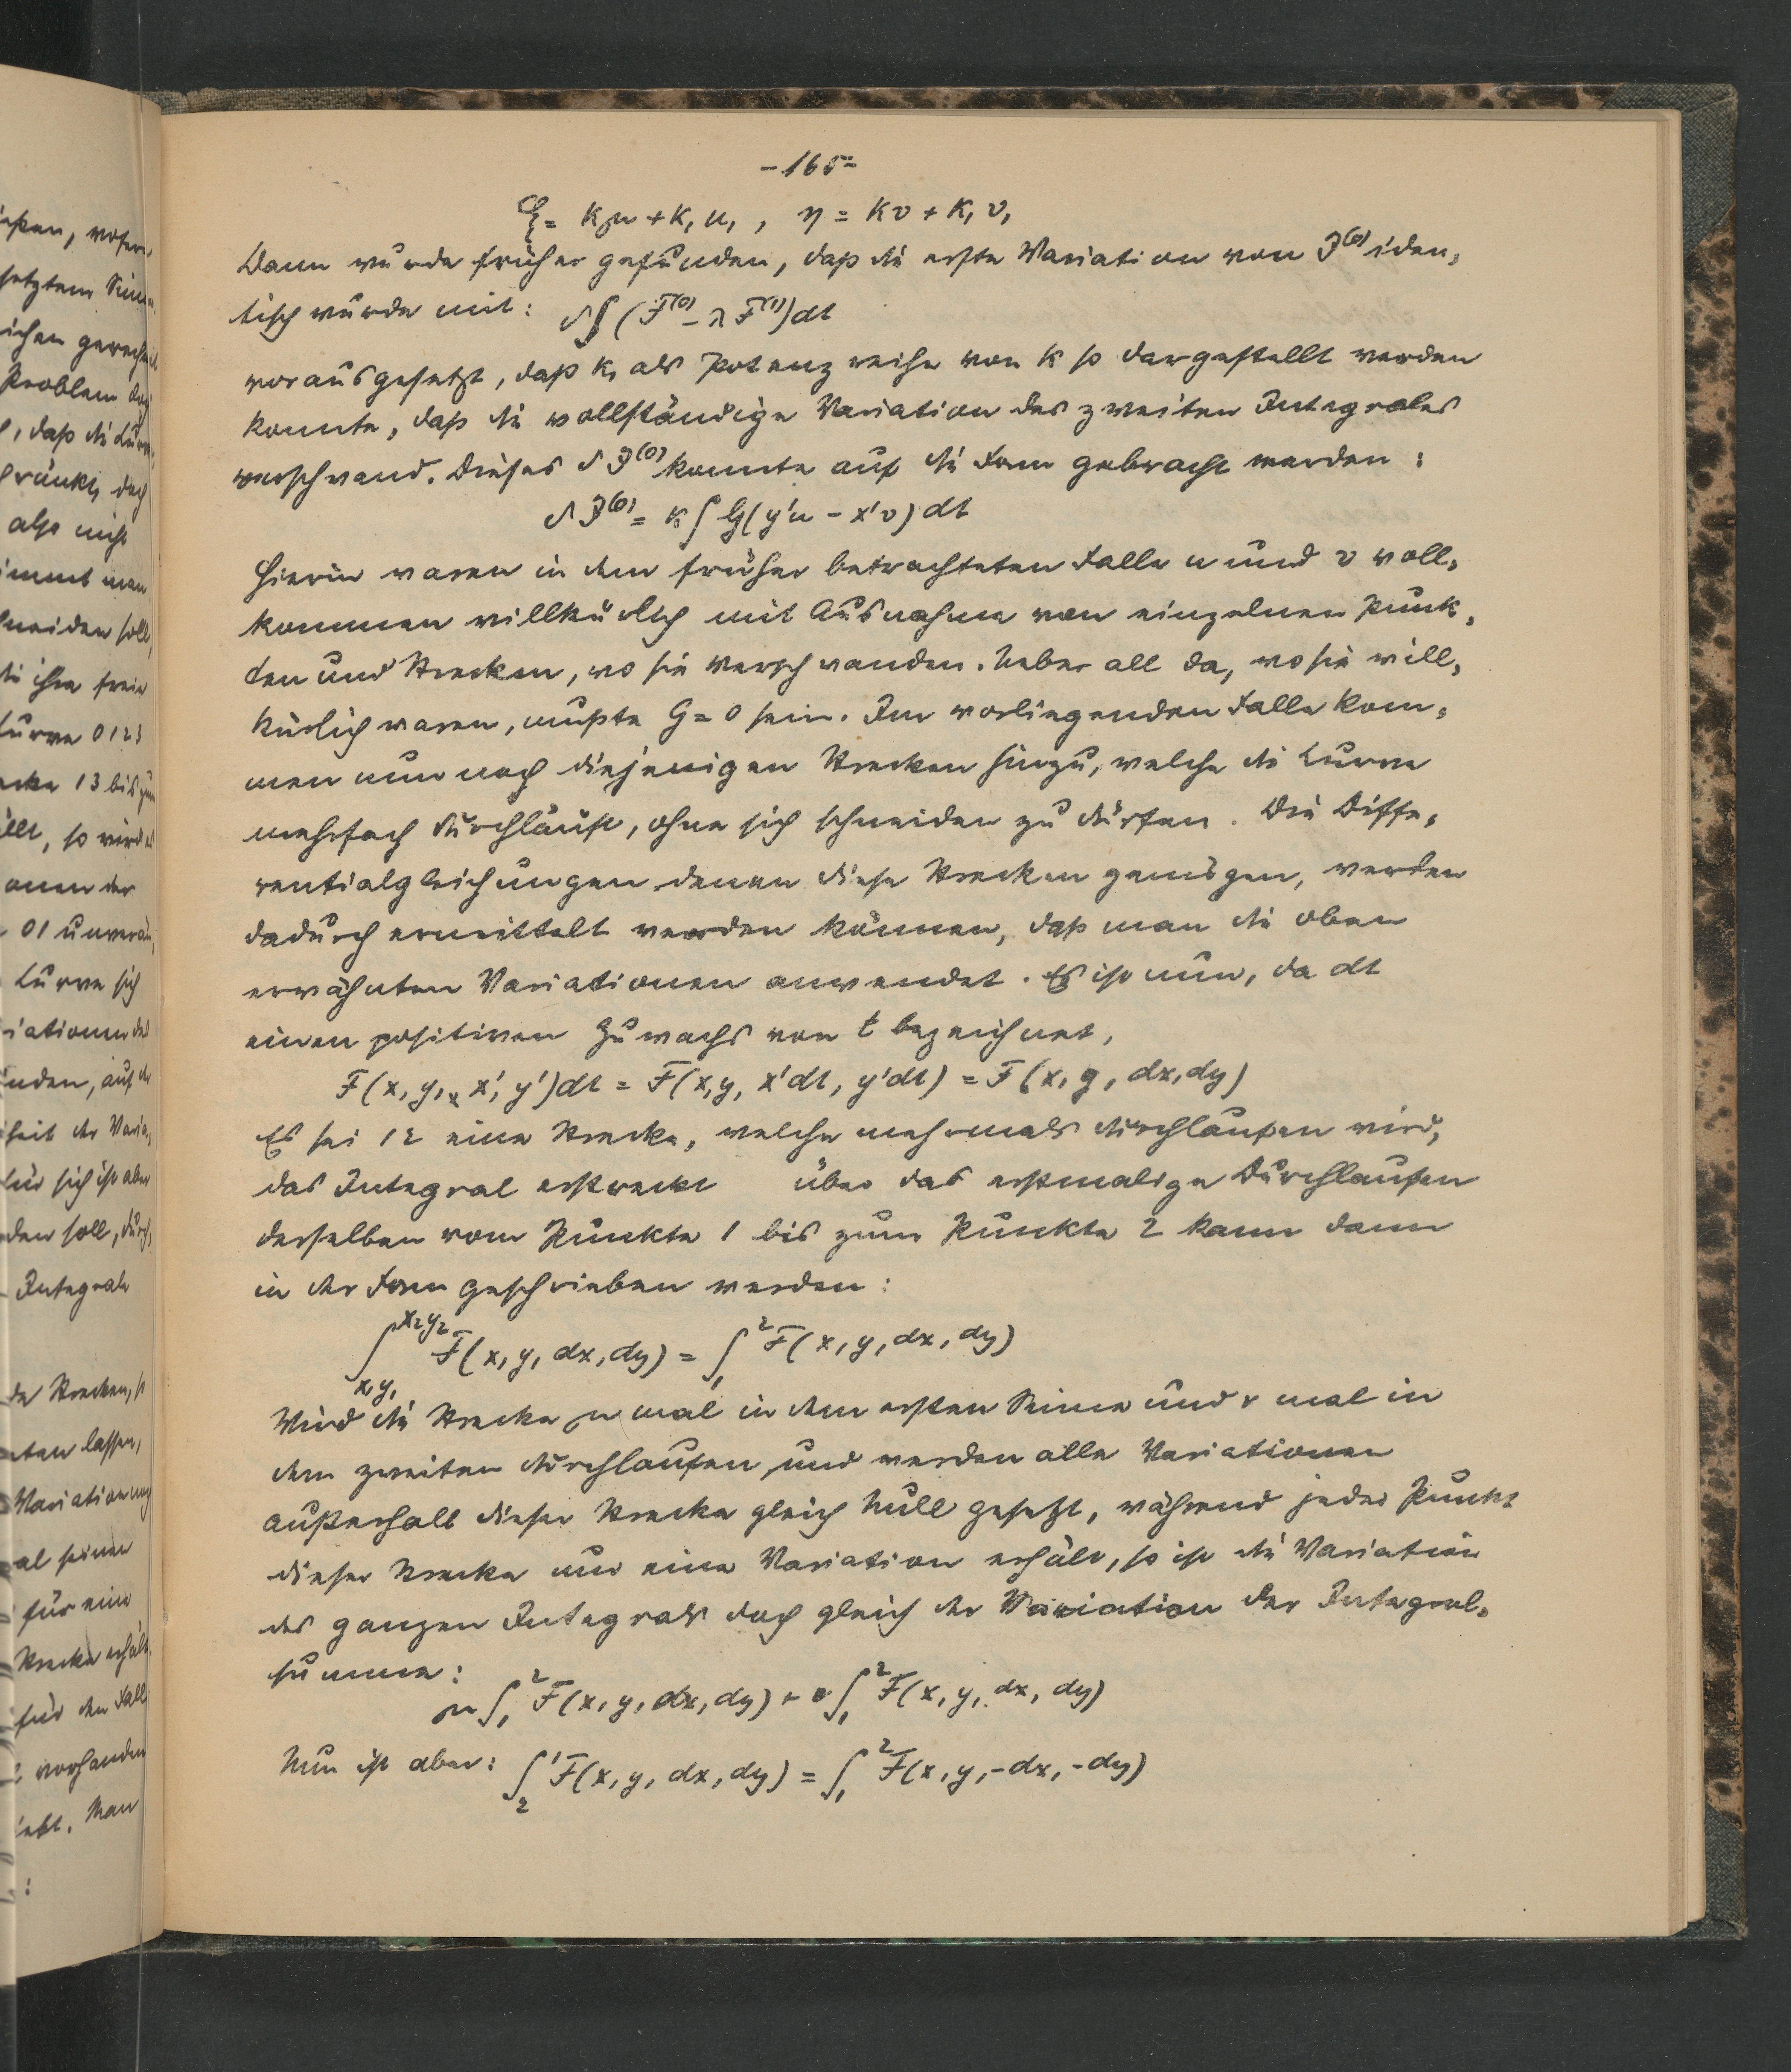 -165-
ξ = ku + k₁u₁ , η = kv + k₁v₁
Dann wurde früher gefunden, daß die erste Variation von J⁽⁰⁾ iden-
tisch wurde mit: δ∫(F⁽⁰⁾ - λF⁽¹⁾)dt
vorausgesetzt, daß k₁ als Potenzreihe von k so dargestellt werden
konnte, daß die vollständige Variation des zweiten Integrales
verschwand. Dieses δJ⁽⁰⁾ konnte auf die Form gebracht werden:
δJ⁽⁰⁾ = k∫G(y'u - x'v)dt
Hierin waren in dem früher betrachteten Falle u und v voll-
kommen willkürlich mit Ausnahme von einzelnen Punk-
ten und Strecken, wo sie verschwanden. Ueberall da, wo sie will-
kürlich waren, mußte G = 0 sein. Im vorliegenden Falle kom-
men nun noch diejenigen Strecken hinzu, welche die Curve
mehrfach durchläuft, ohne sich schneiden zu dürfen. Die Diffe-
rentialgleichungen denen diese Strecken genügen, werden
dadurch ermittelt werden können, daß man die oben
erwähnten Variationen anwendet. Es ist nun, da dt
einen positiven Zuwachs von t bezeichnet,
F(x, y, x', y')dt = F(x, y, x'dt, y'dt) = F(x, y, dx, dy)
Es sei 12 eine Strecke, welche mehrmals durchlaufen wird,
das Integral erstreckt über das erstmalige Durchlaufen
derselben vom Punkte 1 bis zum Punkte 2 kann dann
in der Form geschrieben werden:
∫_{x₁y₁}^{x₂y₂} F(x, y, dx, dy) = ∫₁² F(x, y, dx, dy)
Wird die Strecke μ mal in dem ersten Sinne und ν mal in
dem zweiten durchlaufen, und werden alle Variationen
außerhalb dieser Strecke gleich Null gesetzt, während jeder Punkt
dieser Strecke nur eine Variation erhält, so ist die Variation
des ganzen Integrals doch gleich der Variation der Integral-
summe:
μ∫₁² F(x, y, dx, dy) + ν∫₁² F(x, y, dx, dy)
Nun ist aber: ∫₂¹ F(x, y, dx, dy) = ∫₁² F(x, y, -dx, -dy)